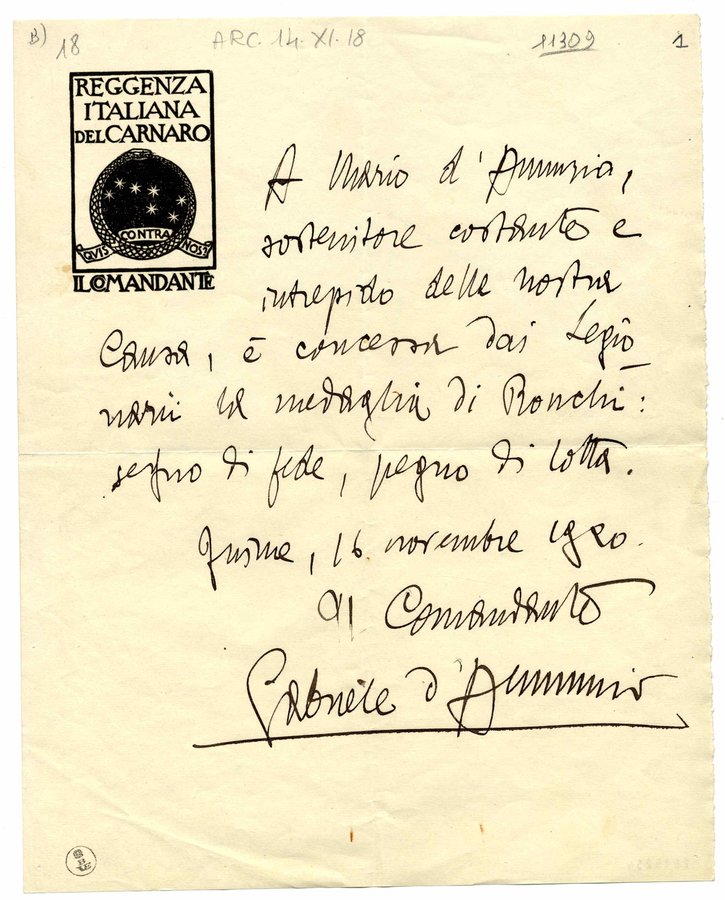 B)
18
ARC. 14. XI. 18
11309
1
REGGENZA
ITALIANA
DEL CARNARO
QUIS CONTRA NOS?
IL COMANDANTE
A Mario d'Annunzio,
sostenitore costante e
intrepido della nostra
Causa, è concessa dai Legio
narii la medaglia di Ronchi:
segno di fede, pegno di lotta.
Fiume, 16 novembre 1920.
Il Comandante
Gabriele d'Annunzio